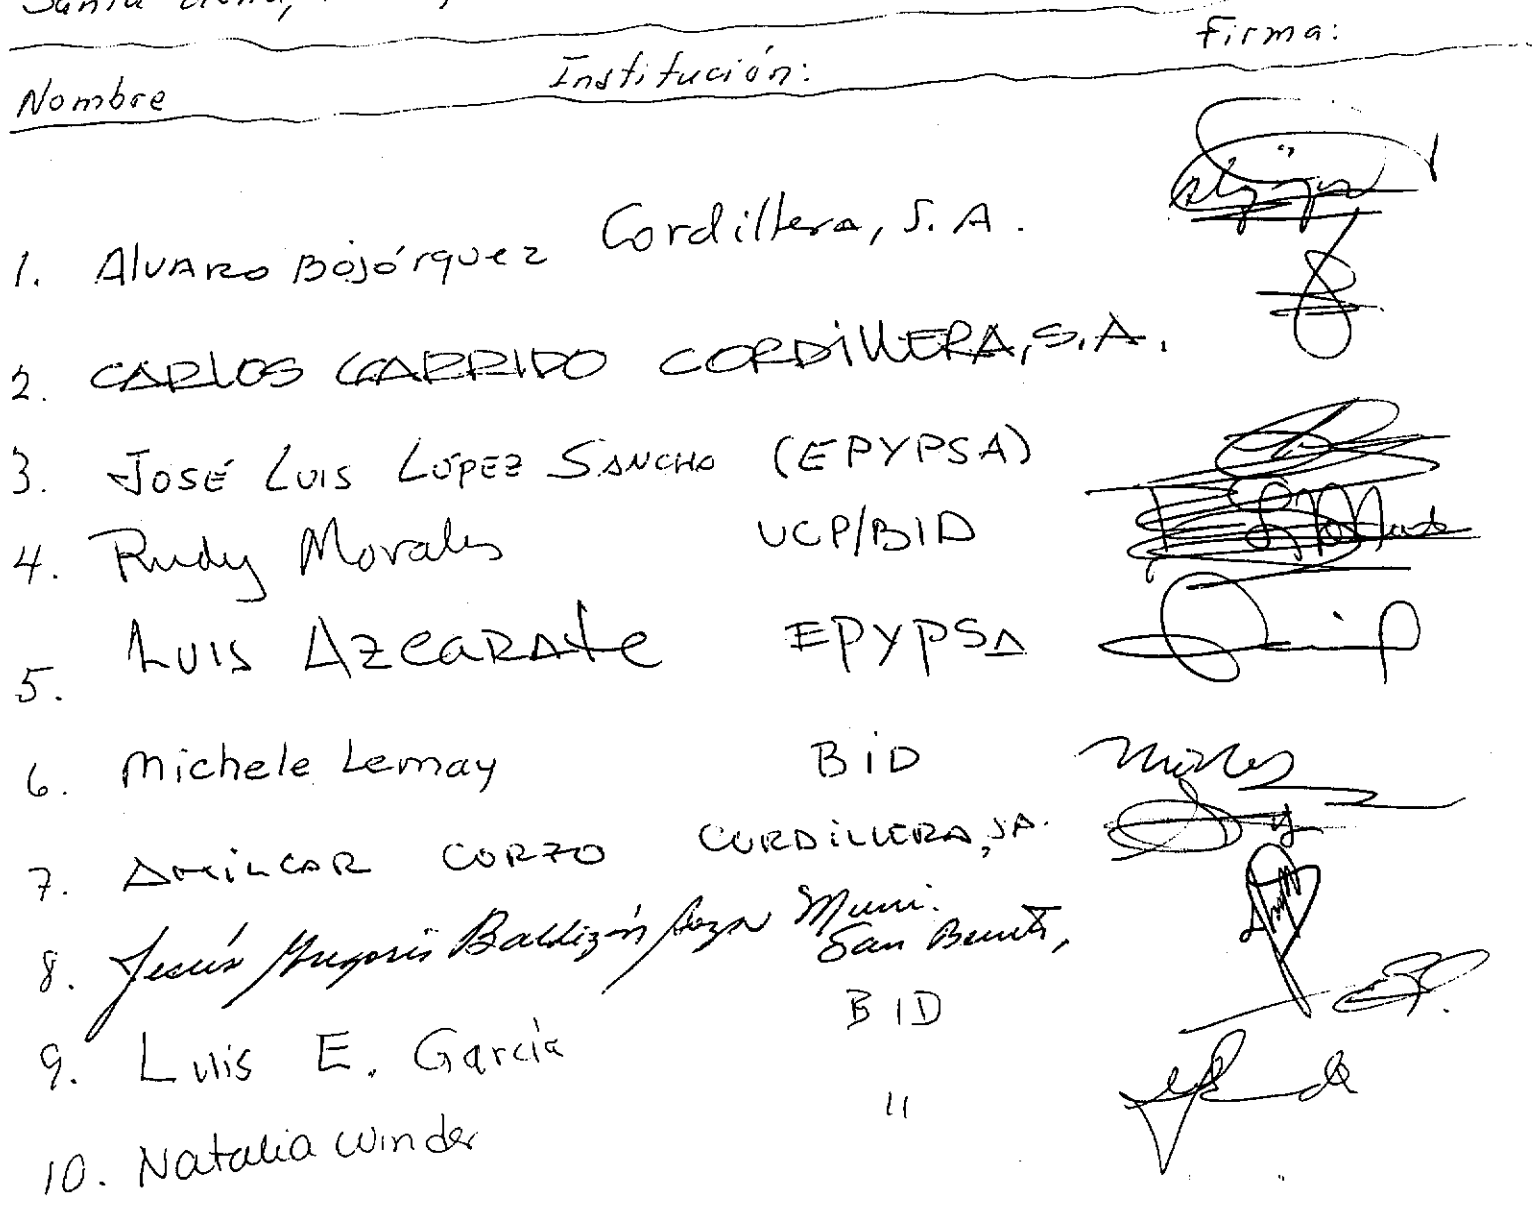 Santa Elena,
Nombre Institución: Firma:
1. Alvaro Bojórquez Cordillera, S.A.
2. CARLOS GARRIDO CORDiLLERA, S.A.
3. JOSÉ LUIS LÓPEZ SANCHO (EPYPSA)
4. Rudy Morales UCP/BID
5. LUIS AZCARATE EPYPSA
6. Michele Lemay BiD
7. AMiLCAR CORZO CORDiLLERA, SA.
8. Jesús Gregorio Baldizón Muni.
San Benito,
9. Luis E. García BID
10. Natalia Winder "